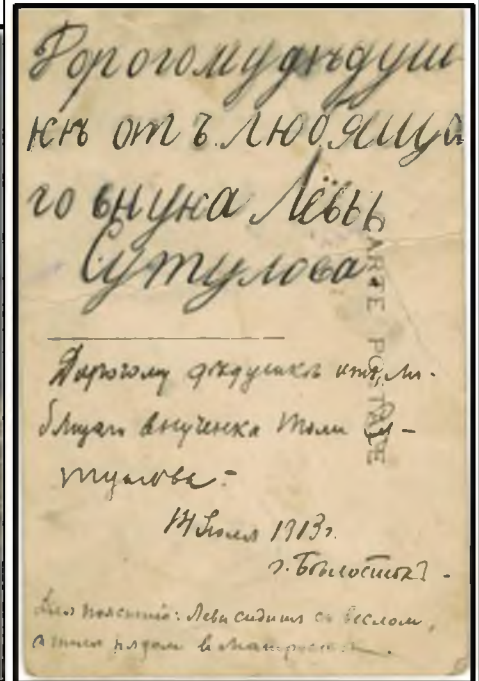 Дорогому дѣдуш
кѣ отъ любяще
го внука Лёвы
Сутулова.
CARTE POSTALE
Дорогому дѣдушкѣ отъ лю-
бящаго внученка Толи Су-
тулова -
14 Июля 1913 г.
г. Бѣлостокъ -
Лева сидит с веслом,
а Толя рядом в